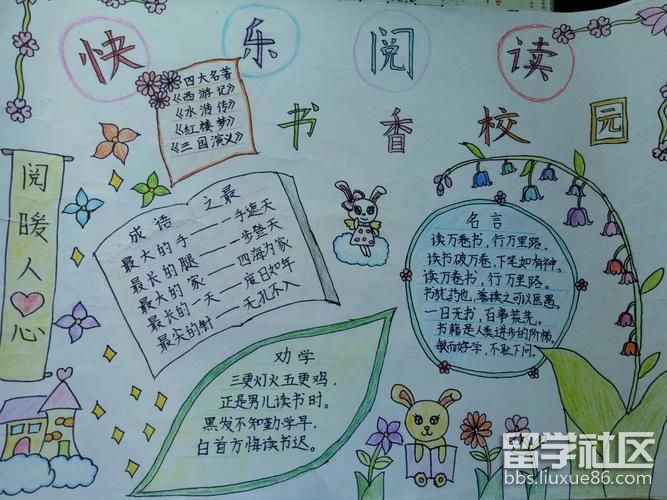 快乐阅读
书香校园
四大名著
《西游记》
《水浒传》
《红楼梦》
《三国演义》
阅暖人心
成语之最
最大的手——一手遮天
最长的腿——一步登天
最大的家——四海为家
最长的一天——度日如年
最尖的针——无孔不入
名言
读万卷书，行万里路。
读书破万卷，下笔如有神。
读万卷书，行万里路。
书犹药也，善读之可以医愚。
一日无书，百事荒芜。
书籍是人类进步的阶梯。
敏而好学，不耻下问。
劝学
三更灯火五更鸡，
正是男儿读书时。
黑发不知勤学早，
白首方悔读书迟。
留学社区
bbs.liuxue86.com